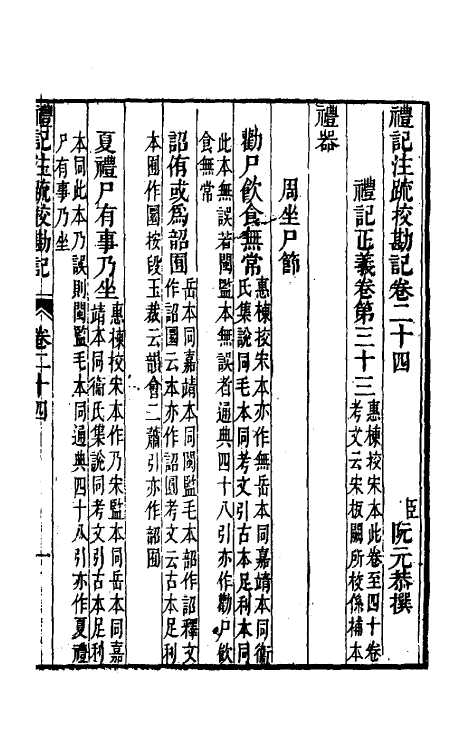 禮記注疏挍勘記卷二十四
臣阮元恭撰
禮記正義卷第三十三
惠棟挍宋本此卷至四十卷
考文云宋板闕所挍係補本
禮器
周坐尸節
勸尸飲食無常
惠棟挍宋本亦作無岳本同嘉靖本同衞
氏集說同毛本同考文引古本足利本同
此本無誤若閩監本無誤者通典四十八引亦作勸尸飲
食無常
詔侑或爲詔囿
岳本同嘉靖本同閩監毛本詔作詔釋文
作詔圓云本亦作詔圓考文云古本足利
本囿作圓按段玉裁云韻會二蕭引亦作詔囿
夏禮尸有事乃坐
惠棟挍宋本作乃宋監本同岳本同嘉
靖本同衞氏集說同考文引古本足利
本同此本乃誤則閩監毛本同通典四十八引亦作夏禮
尸有事乃坐
禮記注疏挍勘記
卷二十四
一